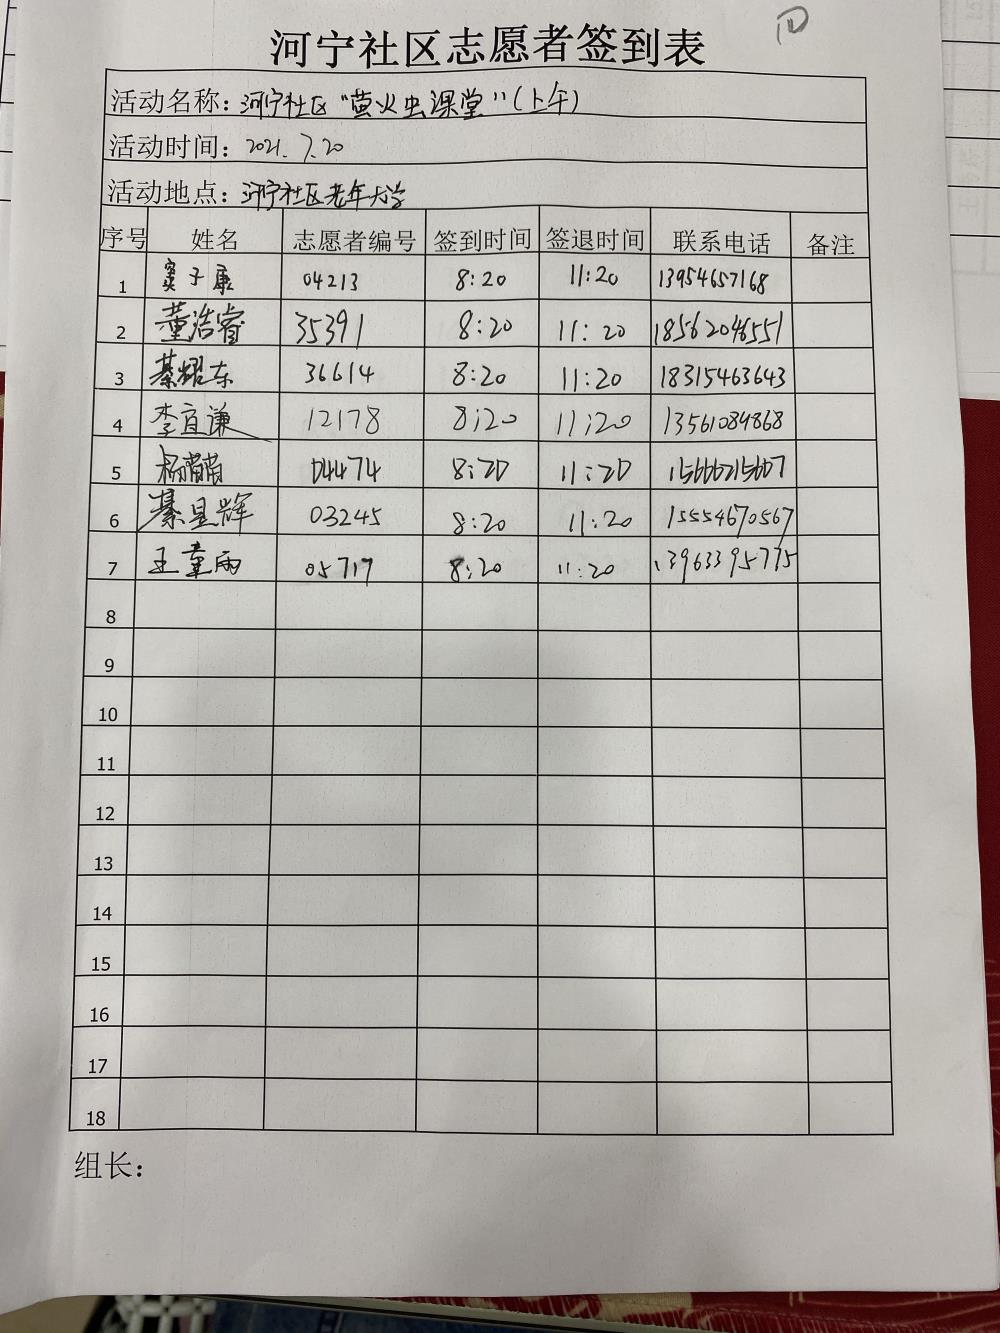 河宁社区志愿者签到表
活动名称：河宁社区“萤火虫课堂”（上午）
活动时间：2021.7.20
活动地点：河宁社区老年大学
序号 姓名 志愿者编号 签到时间 签退时间 联系电话 备注
1 窦子康 04213 8:20 11:20 13954657168
2 董浩睿 35391 8:20 11:20 18562046551
3 綦耀东 36614 8:20 11:20 18315463643
4 李宜谦 12178 8:20 11:20 13561084868
5 杨菁菁 04474 8:20 11:20 15666215607
6 綦星辉 03245 8:20 11:20 15554670567
7 王童雨 05717 8:20 11:20 13963395775
8
9
10
11
12
13
14
15
16
17
18
组长：